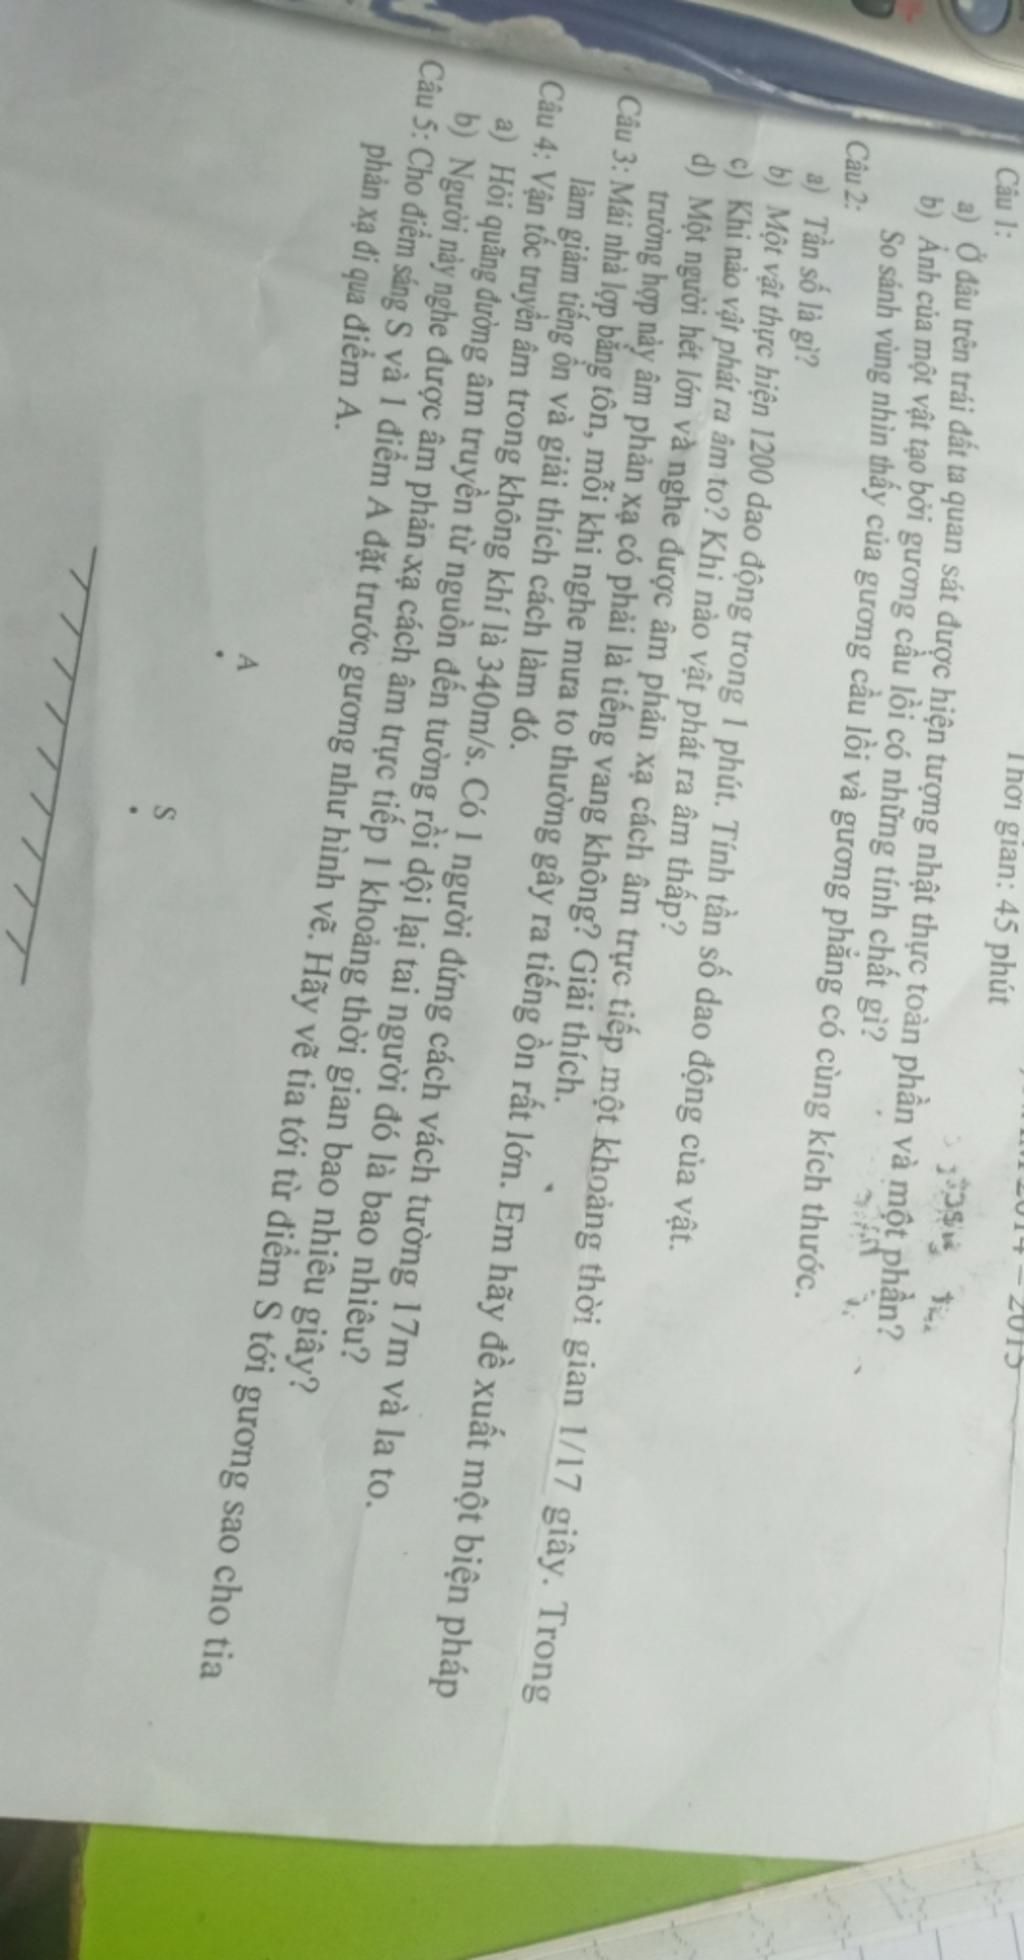 2014 – 2015
Thời gian: 45 phút
Câu 1:
a) Ở đâu trên trái đất ta quan sát được hiện tượng nhật thực toàn phần và một phần?
b) Ảnh của một vật tạo bởi gương cầu lồi có những tính chất gì?
So sánh vùng nhìn thấy của gương cầu lồi và gương phẳng có cùng kích thước.
Câu 2:
a) Tần số là gì?
b) Một vật thực hiện 1200 dao động trong 1 phút. Tính tần số dao động của vật.
c) Khi nào vật phát ra âm to? Khi nào vật phát ra âm thấp?
d) Một người hét lớn và nghe được âm phản xạ cách âm trực tiếp một khoảng thời gian 1/17 giây. Trong
trường hợp này âm phản xạ có phải là tiếng vang không? Giải thích.
Câu 3: Mái nhà lợp bằng tôn, mỗi khi nghe mưa to thường gây ra tiếng ồn rất lớn. Em hãy đề xuất một biện pháp
làm giảm tiếng ồn và giải thích cách làm đó.
Câu 4: Vận tốc truyền âm trong không khí là 340m/s. Có 1 người đứng cách vách tường 17m và la to.
a) Hỏi quãng đường âm truyền từ nguồn đến tường rồi dội lại tai người đó là bao nhiêu?
b) Người này nghe được âm phản xạ cách âm trực tiếp 1 khoảng thời gian bao nhiêu giây?
Câu 5: Cho điểm sáng S và 1 điểm A đặt trước gương như hình vẽ. Hãy vẽ tia tới từ điểm S tới gương sao cho tia
phản xạ đi qua điểm A.
A
S